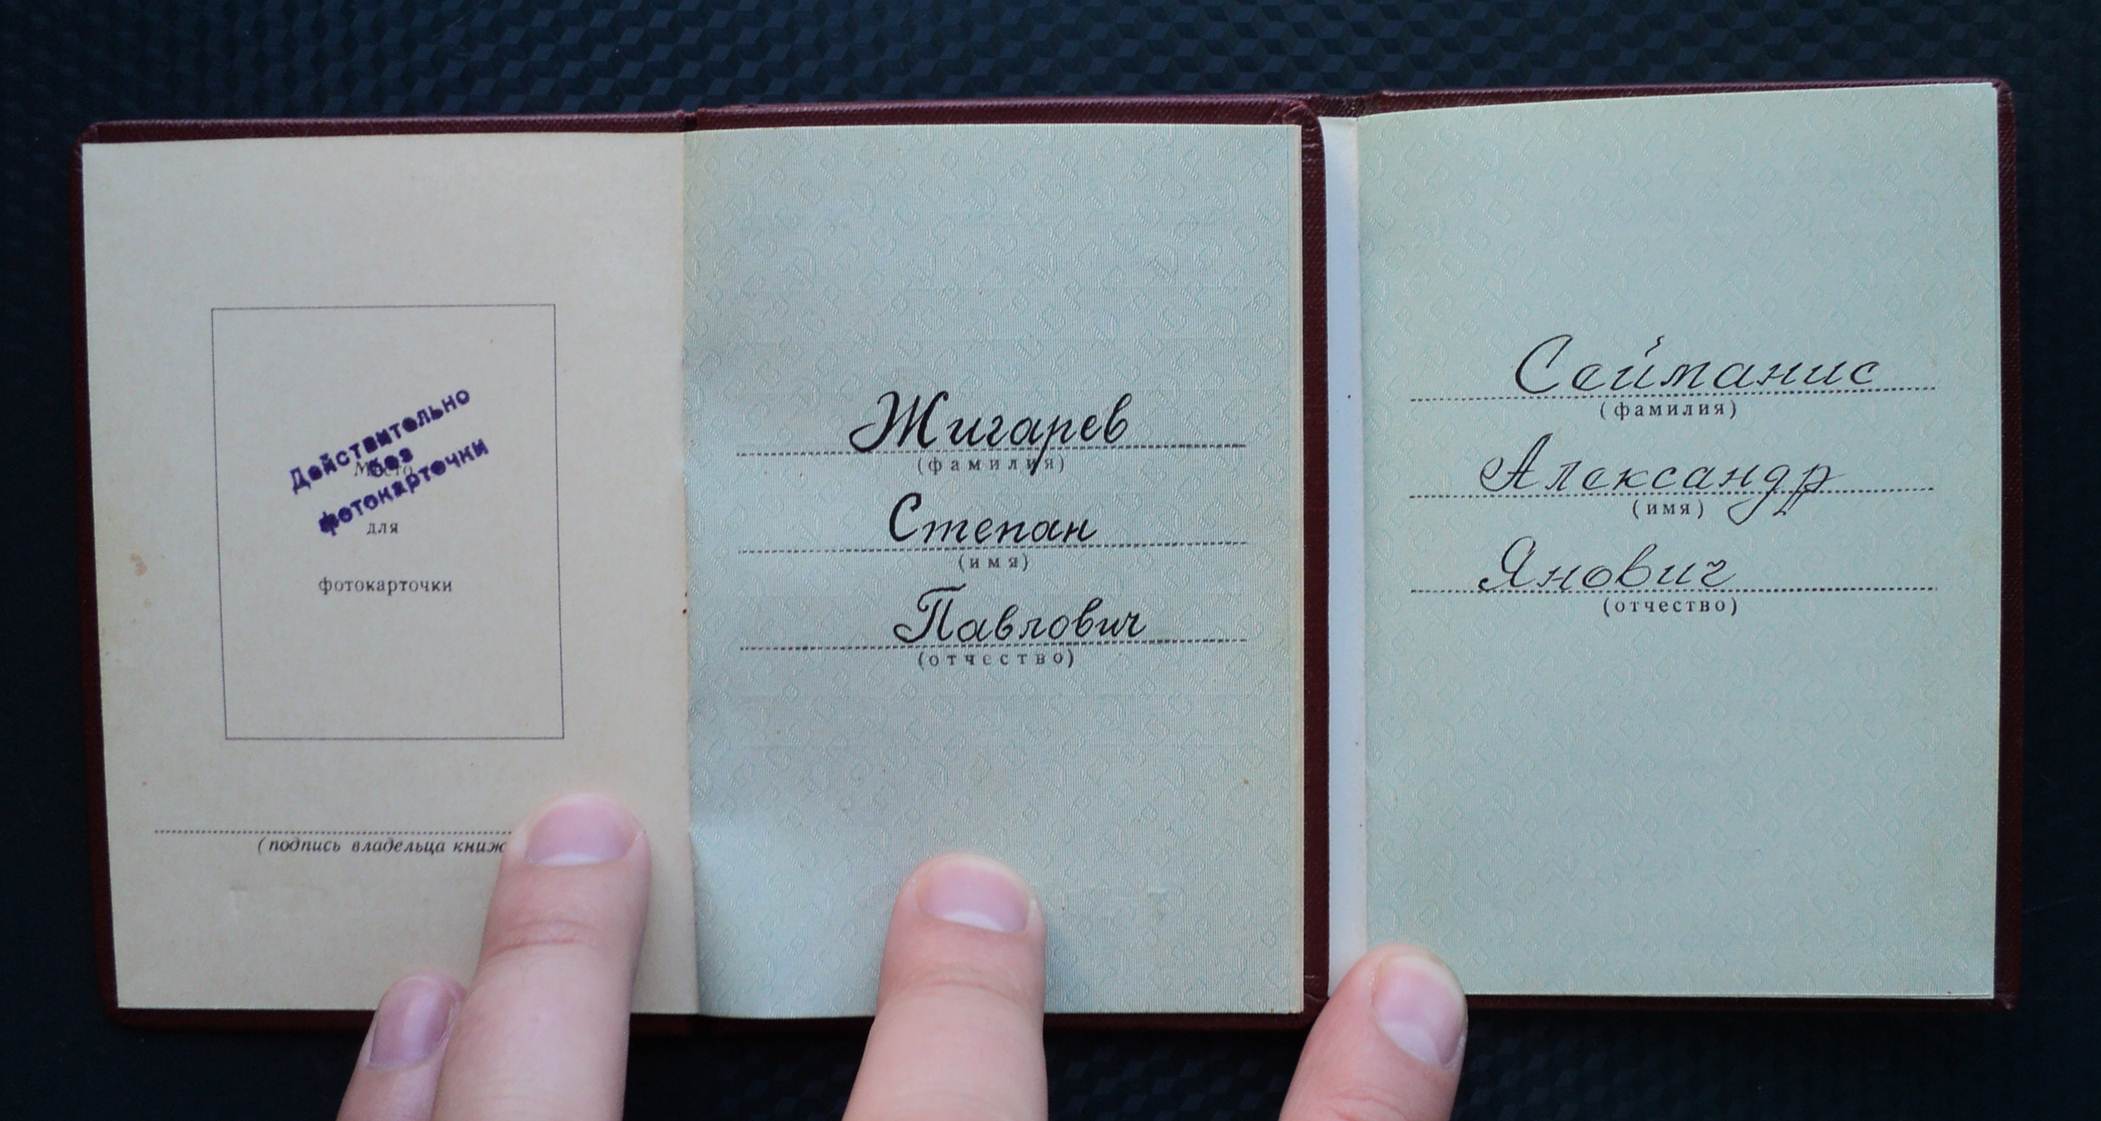 Действительно
без
фотокарточки
Место
для
фотокарточки
(подпись владельца книж
Жигарев
(фамилия)
Степан
(имя)
Павлович
(отчество)
Сейманис
(фамилия)
Александр
(имя)
Янович
(отчество)